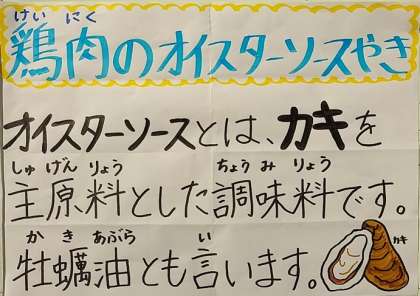 けい にく
鶏肉のオイスターソースやき
オイスターソースとは、カキを
しゅ げん りょう ちょう み りょう
主原料とした調味料です。
か き あぶら い
牡蠣油とも言います。
カキ